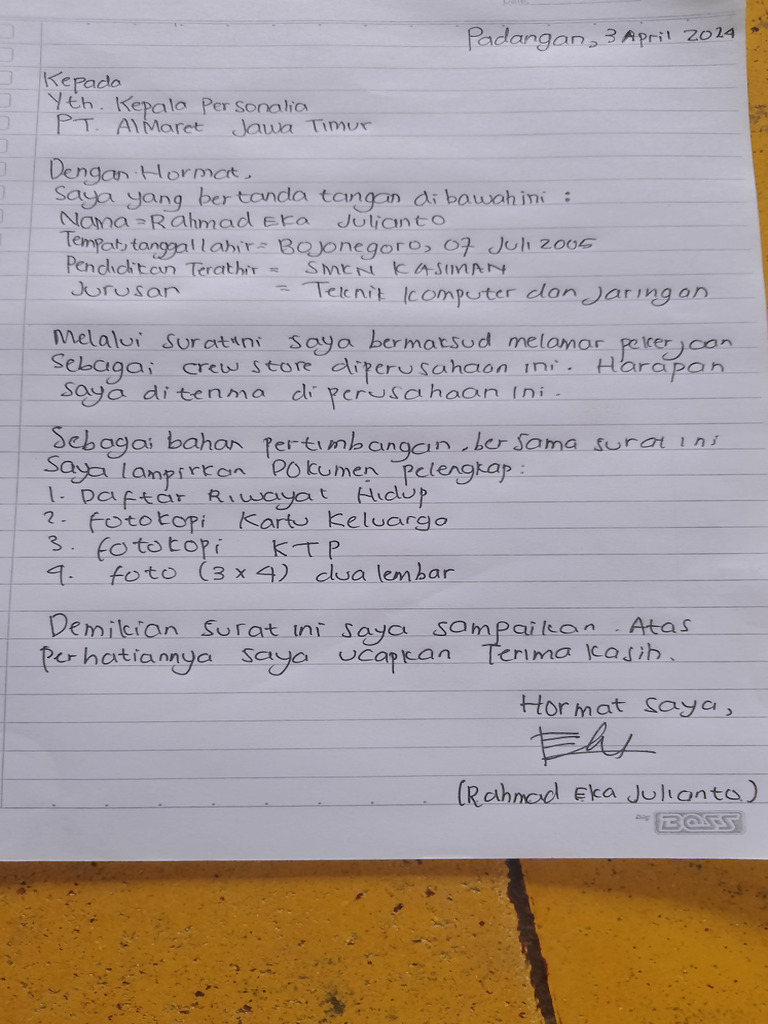 Padangan, 3 April 2024
Kepada
Yth. Kepala Personalia
PT. AlMaret Jawa Timur
Dengan Hormat,
Saya yang bertanda tangan dibawahini :
Nama = Rahmad Eka Julianto
Tempat, tanggal lahir = Bojonegoro, 07 Juli 2005
Pendidikan Terakhir = SMKN KASIMAN
Jurusan = Teknik Komputer dan Jaringan
Melalui surat ini saya bermaksud melamar pekerjaan
Sebagai crew store diperusahaan ini. Harapan
saya diterima di perusahaan ini.
Sebagai bahan pertimbangan, bersama surat ini
Saya lampirkan Dokumen pelengkap :
1. Daftar Riwayat Hidup
2. fotokopi Kartu Keluarga
3. fotokopi KTP
4. foto (3 x 4) dua lembar
Demikian surat ini saya sampaikan. Atas
perhatiannya saya ucapkan Terima Kasih.
Hormat saya,
(Rahmad Eka Julianto)
BOSS